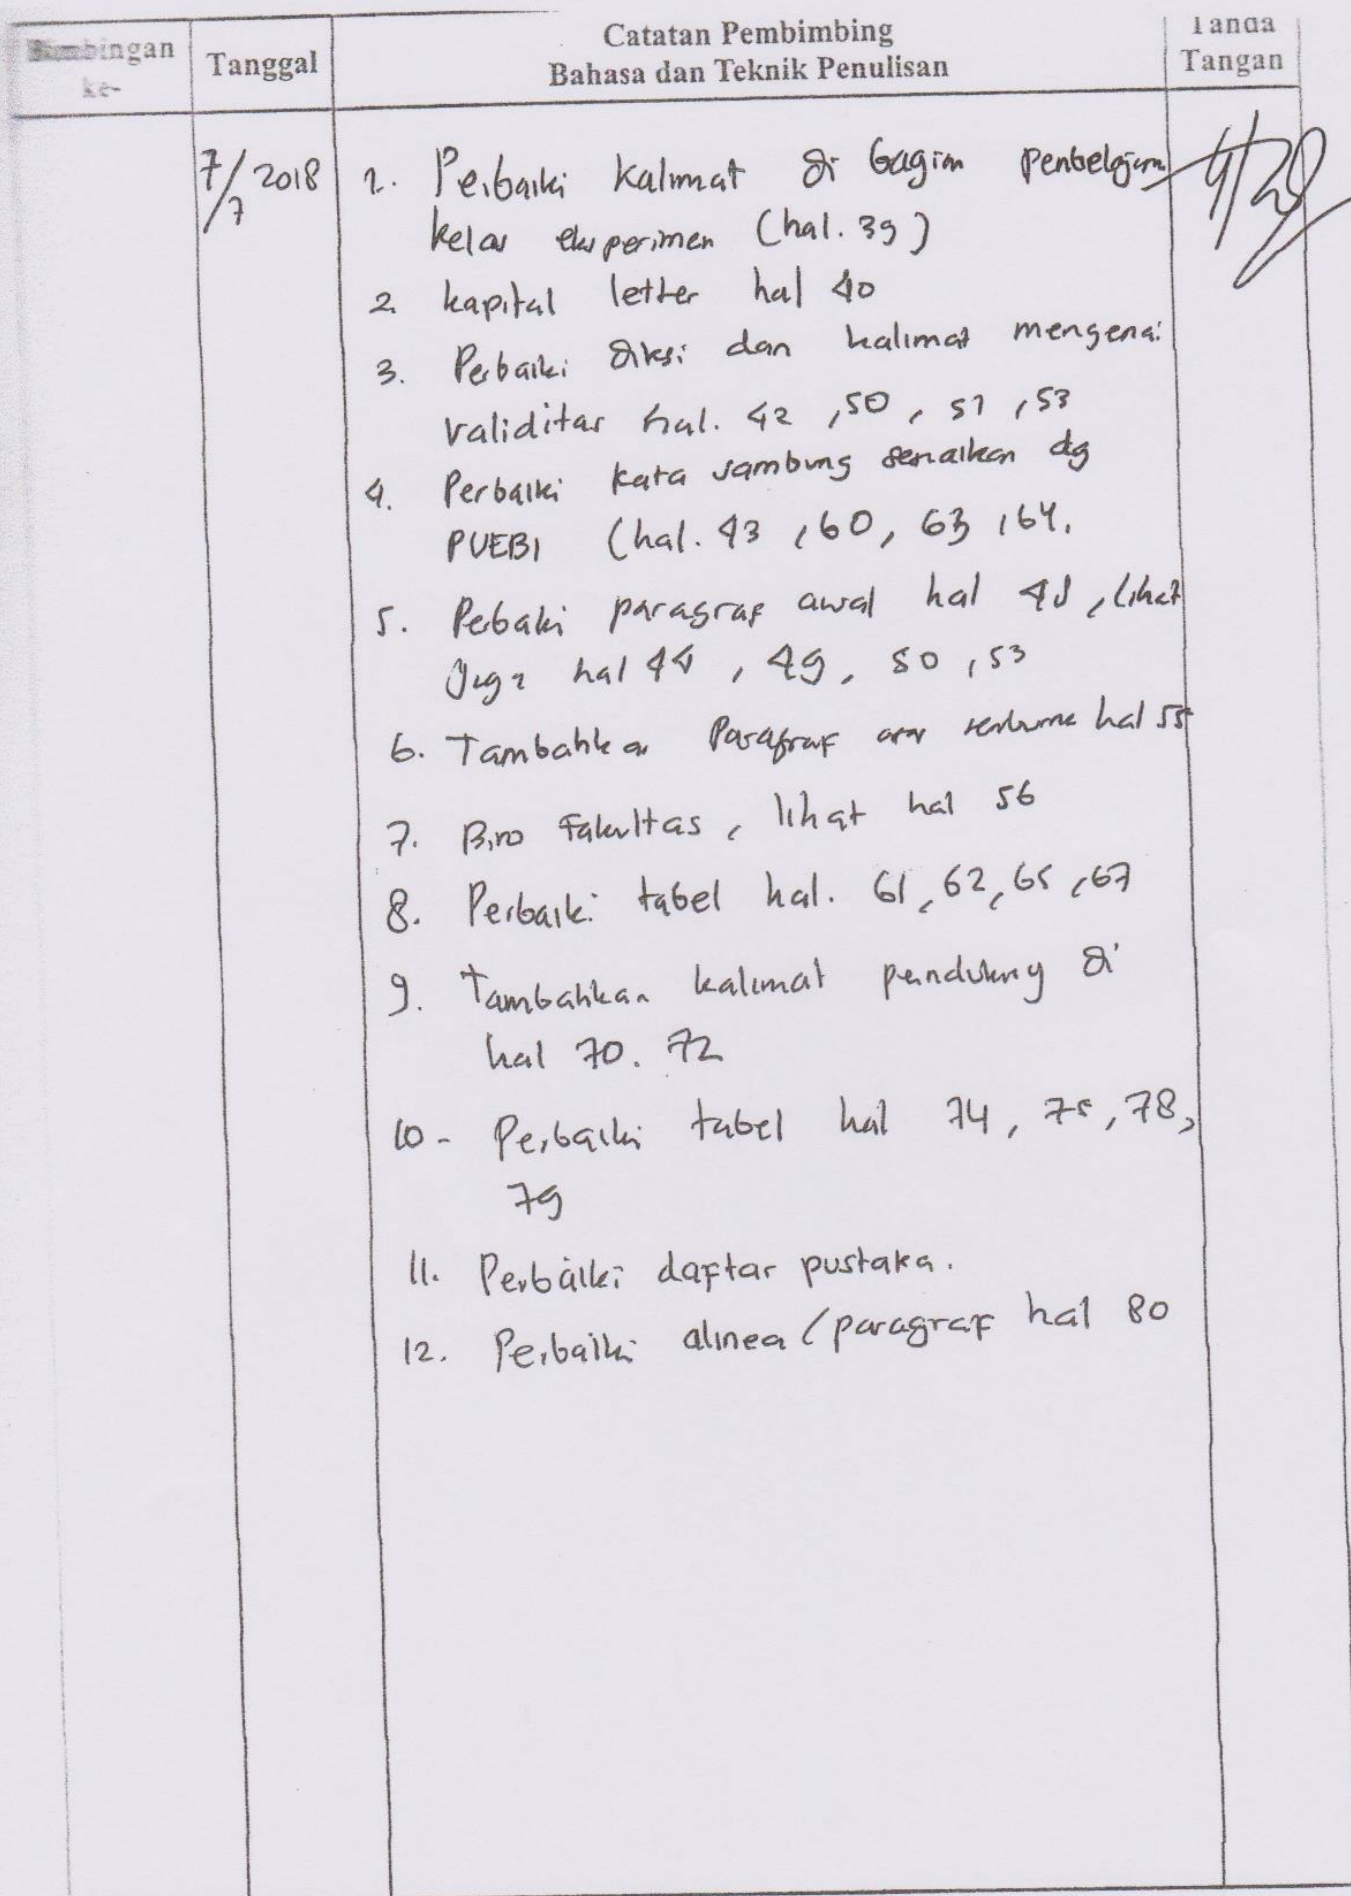 Bimbingan
ke-
Tanggal
Catatan Pembimbing
Bahasa dan Teknik Penulisan
Tanda
Tangan
7/7 2018
1. Perbaiki kalimat di bagian pembelajaran
kelas eksperimen (hal. 39)
2. kapital letter hal 40
3. Perbaiki diksi dan kalimat mengenai
validitas hal. 42, 50, 51, 53
4. Perbaiki kata sambung sesuaikan dg
PUEBI (hal. 43, 60, 63, 64.
5. Perbaki paragraf awal hal 48, lihat
Juga hal 44, 49, 50, 53
6. Tambahkan Paragraf hal 55
7. Biro Fakultas, lihat hal 56
8. Perbaiki tabel hal. 61, 62, 65, 67
9. Tambahkan kalimat pendukung di
hal 70. 72
10 - Perbaiki tabel hal 74, 75, 78,
79
11. Perbaiki daftar pustaka.
12. Perbaiki alinea / paragraf hal 80